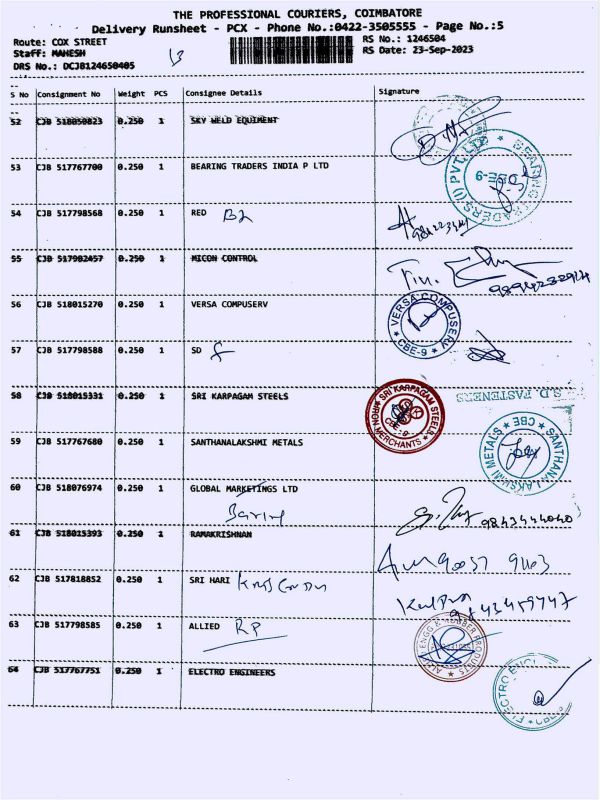 THE PROFESSIONAL COURIERS, COIMBATORE
Delivery Runsheet - PCX - Phone No.:0422-3505555 - Page No.:5
Route: COX STREET RS No.: 1246504
Staff: MAHESH RS Date: 23-Sep-2023
DRS No.: DCJB124650405
S No Consignment No Weight PCS Consignee Details Signature
52 CJB 518050823 0.250 1 SKY WELD EQUIMENT
53 CJB 517767700 0.250 1 BEARING TRADERS INDIA P LTD
BEARING TRADERS (I) PVT LTD CBE-9
54 CJB 517798568 0.250 1 RED
55 CJB 517982457 0.250 1 MICON CONTROL
56 CJB 518015270 0.250 1 VERSA COMPUSERV
VERSA COMPUSERV CBE-9
57 CJB 517798588 0.250 1 SD
S.D. FASTENERS
58 CJB 518015331 0.250 1 SRI KARPAGAM STEELS
SRI KARPAGAM STEELS IRON MERCHANTS CBE-9
59 CJB 517767680 0.250 1 SANTHANALAKSHMI METALS
SANTHANA LAKSHMI METALS CBE
60 CJB 518076974 0.250 1 GLOBAL MARKETINGS LTD
9843444040
61 CJB 518015393 0.250 1 RAMAKRISHNAN
90037 9163
62 CJB 517818852 0.250 1 SRI HARI
63 CJB 517798585 0.250 1 ALLIED RP
64 CJB 517767751 0.250 1 ELECTRO ENGINEERS